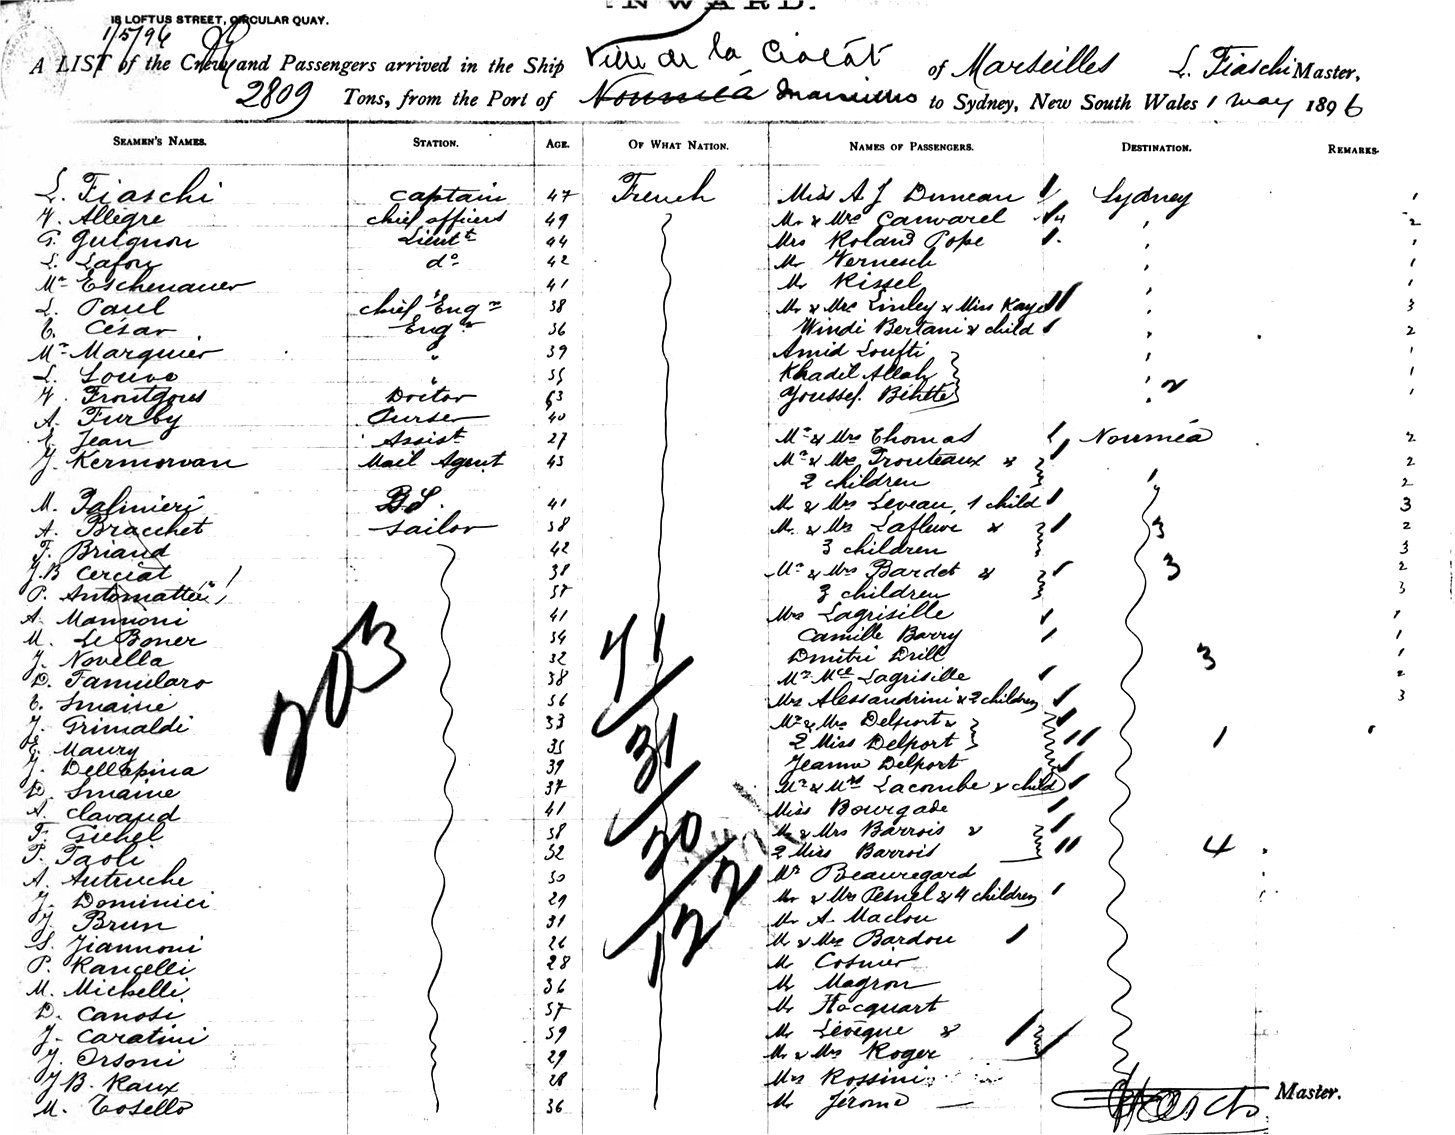 INWARD.
18 LOFTUS STREET, CIRCULAR QUAY.
1/5/96
A LIST of the Crew and Passengers arrived in the Ship Ville de la Ciotât of Marseilles L. Fiaschi Master,
2809 Tons, from the Port of Nouméa Marseilles to Sydney, New South Wales 1 May 1896
SEAMEN'S NAMES. STATION. AGE. OF WHAT NATION. NAMES OF PASSENGERS. DESTINATION. REMARKS.
L. Fiaschi Captain 47 French Miss A J Duncan Sydney 1
V. Allègre chief officer 49 Mr & Mrs Canvarel 4 2
G. Guignon Lieutt 44 Mrs Roland Pope 1
L. Lafon do 42 Mr Vernesch 1
Mr Eschenauer 41 Mr Kissel 1
L. Paul chief Engr 38 Mr & Mrs Linley & Miss Kaye 3
C. César Engr 36 Windi Bertani & child 2
Mr Marquier " 39 Amid Loufti 1
L. Louve " 35 Khadil Allah 1
V. Frontgous Doctor 63 Youssef Bihitte 2 1
A. Furby Purser 40
E. Jean Assistt 27 Mr & Mrs Thomas Nouméa 2
J. Kermorvan Mail Agent 43 Mr & Mrs Trouteaux & 2
2 children 2
M. Palmieri B.S. 41 Mr & Mrs Leveau, 1 child 3
A. Bracchet Sailor 38 Mr & Mrs Lafleur & 3 2
F. Briand 42 3 children 3
J.B Cerciat 38 Mr & Mrs Bardet & 3 2
P. Antomattéi 37 3 children 3
A. Mannoni 41 Mrs Lagrisille 1
M. Le Boner 34 Camille Barry 1
J. Novella 32 Dmitri Drill 3 1
D. Famularo 38 Mr Mce Lagrisille 2
C. Smaine 36 Mrs Alessandrini & 2 children 3
J. Grimaldi 33 Mr & Mrs Delport &
E. Maury 35 2 Miss Delport 1
J. Dellapina 39 Jeanne Delport
D. Smaine 37 Mr & Mrs Lacombe & child
A. Clavaud 41 Miss Bourgade
F. Guhel 38 Mr & Mrs Barrois &
P. Paoli 32 2 Miss Barrois 4
A. Autruche 30 Mr Beauregard
J. Dominici 29 Mr & Mrs Pesnel & 4 children
J. Brun 31 Mr A. Maclou
S. Giannoni 26 Mr & Mrs Bardou
P. Rancelli 28 Mr Cosnier
M. Michelli 36 Mr Magron
D. Canosi 37 Mr Hocquart
J. Caratini 39 Mr Levêque &
J. Orsoni 29 Mr & Mrs Roger
J B. Raux 28 Mrs Rossini
M. Tosello 36 Mr Jérome
203
71
31
20
122
Master.